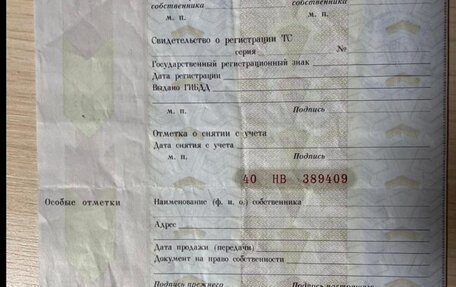 собственника собственника
м. п.
Свидетельство о регистрации ТС
серия №
Государственный регистрационный знак
Дата регистрации
Выдано ГИБДД
м. п. Подпись
Отметка о снятии с учета
Дата снятия с учета
м. п. Подпись
40 НВ 389409
Особые отметки Наименование (ф. и. о.) собственника
Адрес
Дата продажи (передачи)
Документ на право собственности
Подпись прежнего Подпись настоящего